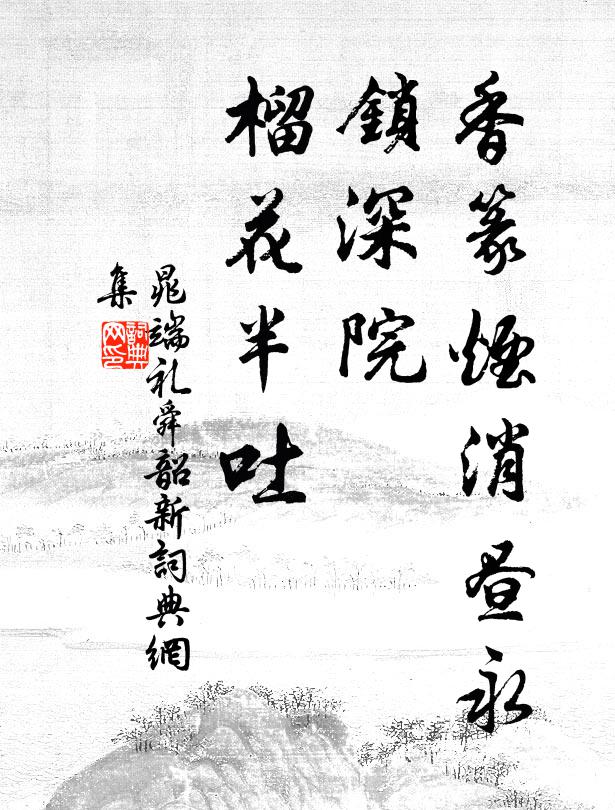 香篆煙消晝永
鎖深院
榴花半吐
晁端礼舜韶新詞典網
集
詞典
网印